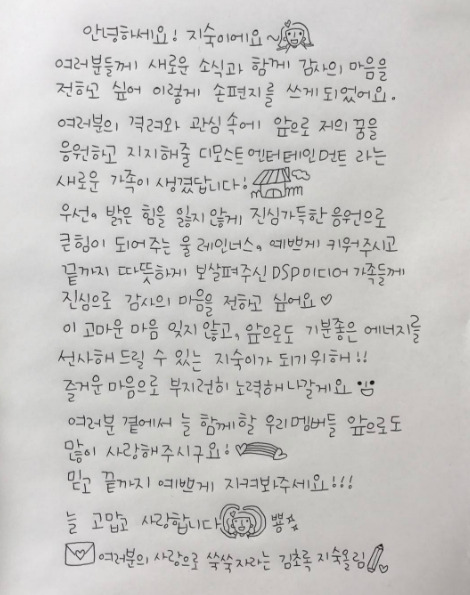 안녕하세요! 지숙이에요~
여러분들께 새로운 소식과 함께 감사의 마음을
전하고 싶어 이렇게 손편지를 쓰게되었어요.
여러분의 격려와 관심속에 앞으로 저의 꿈을
응원하고 지지해줄 디모스트엔터테인먼트 라는
새로운 가족이 생겼답니다!
우선, 밝은 힘을 잃지않게 진심가득한 응원으로
큰힘이 되어주는 울 레인너스, 예쁘게 키워주시고
끝까지 따뜻하게 보살펴주신 DSP미디어 가족들께
진심으로 감사의 마음을 전하고 싶어요♡
이 고마운 마음 잊지 않고, 앞으로도 기분좋은 에너지를
선사해 드릴 수 있는 지숙이가 되기위해!!
즐거운 마음으로 부지런히 노력해나갈게요
여러분 곁에서 늘 함께할 우리멤버들 앞으로도
많이 사랑해주시구요!
믿고 끝까지 예쁘게 지켜봐주세요!!!
늘 고맙고 사랑합니다 뿅
여러분의 사랑으로 쑥쑥자라는 김초록 지숙올림